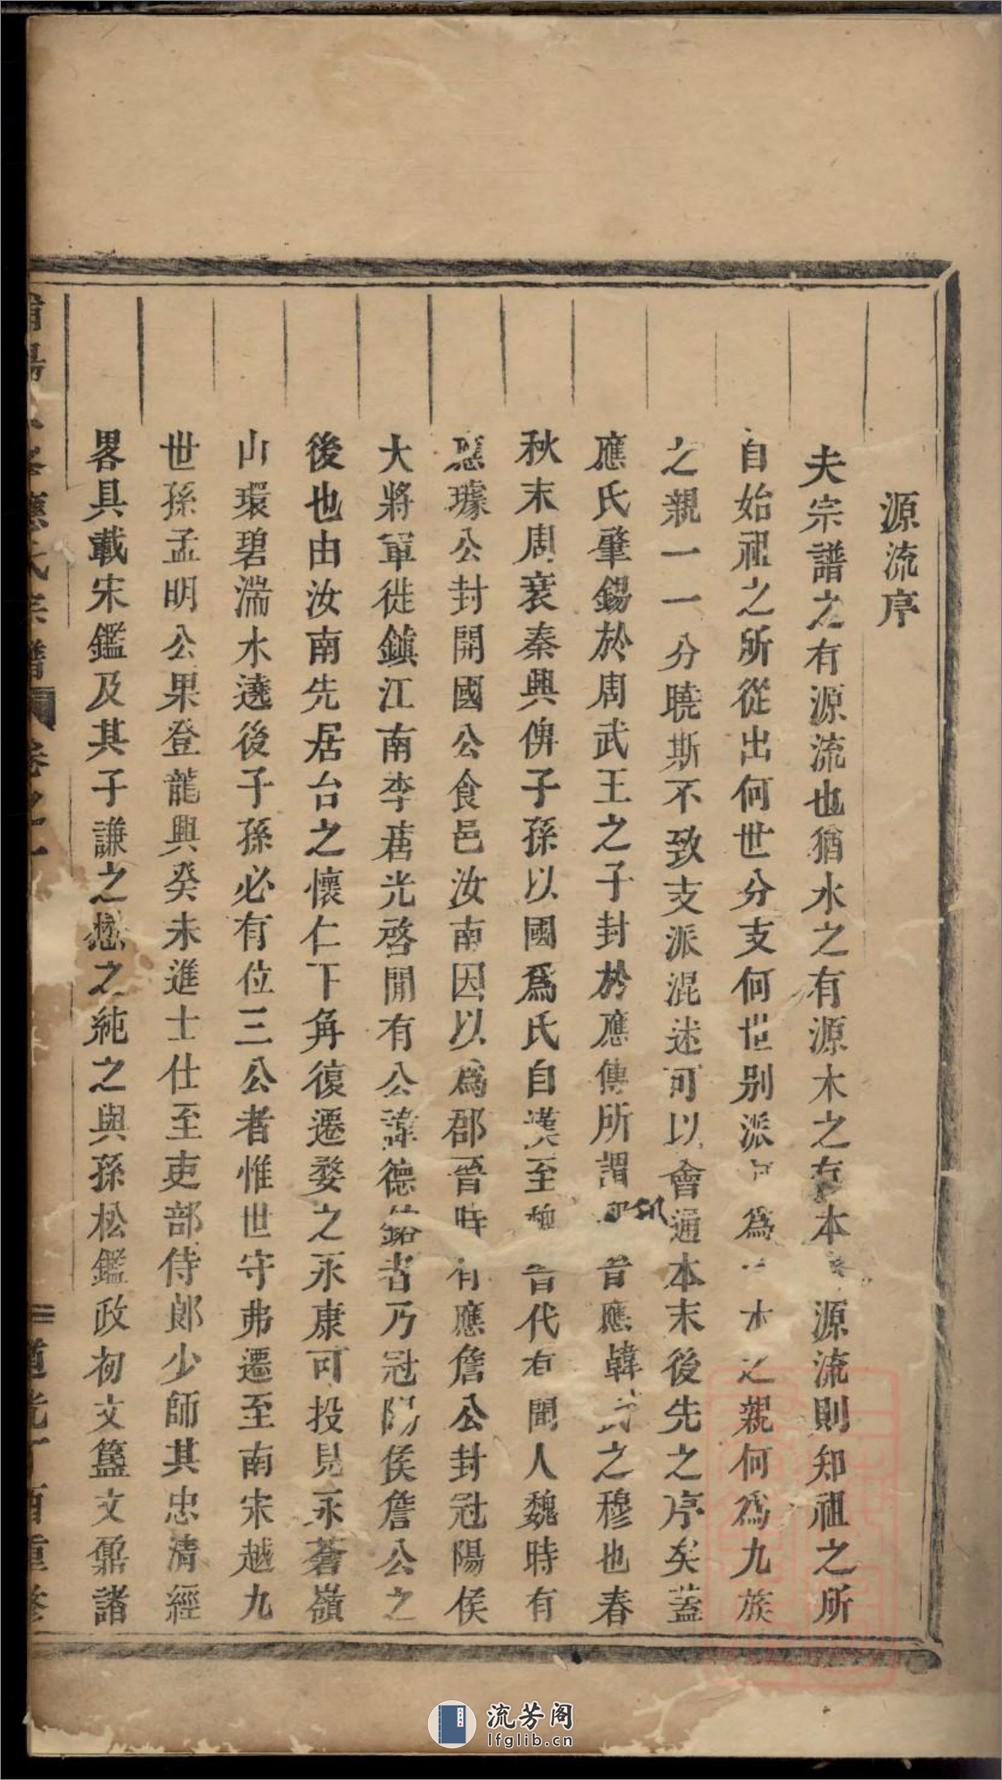 源流序
夫宗譜之有源流也猶水之有源木之有本 源流則知祖之所
自始祖之所從出何世分支何世別派 爲 之親何爲九族
之親一一分曉斯不致支派混迷可以會通本末後先之序矣蓋
應氏肇錫於周武王之子封於應傳所謂邘晉應韓武之穆也春
秋末周衰秦興俾子孫以國爲氏自漢至魏晉代有聞人魏時有
應璩公封開國公食邑汝南因以爲郡晉時有應詹公封冠陽侯
大將軍徙鎮江南李唐光啓間有公諱德 者乃冠陽侯詹公之
後也由汝南先居台之懷仁下角復遷婺之永康可投見永蒼嶺
山環碧湍水遶後子孫必有位三公者惟世守弗遷至南宋越九
世孫孟明公果登龍興癸未進士仕至吏部侍郎少師其忠清經
畧具載宋鑑及其子謙之懋之純之與孫松鑑政初文簋文鼐諸
氏宗譜 卷之一 道光丁酉重修
流芳阁
lfglib.cn